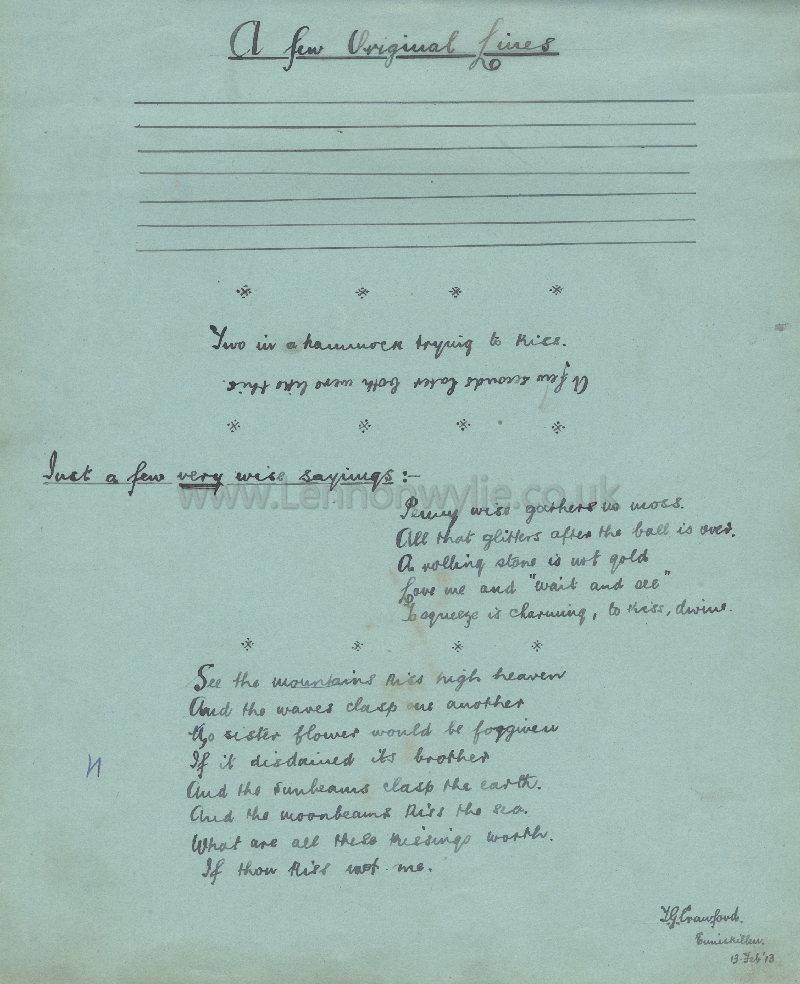 A few Original Lines
Two in a hammock trying to kiss.
A few seconds later both were like this.
Just a few very wise sayings:-
www.Lennonwylie.co.uk
Penny wise gathers no moss.
All that glitters after the ball is over.
A rolling stone is not gold
Love me and "wait and see"
To squeeze is charming, to kiss, divine.
See the mountains kiss high heaven
And the waves clasp one another
No sister flower would be forgiven
If it disdained its brother
And the sunbeams clasp the earth.
And the moonbeams kiss the sea.
What are all these kissings worth.
If thou kiss not me.
T.G. Crawford.
Enniskillen.
13 Feb '13